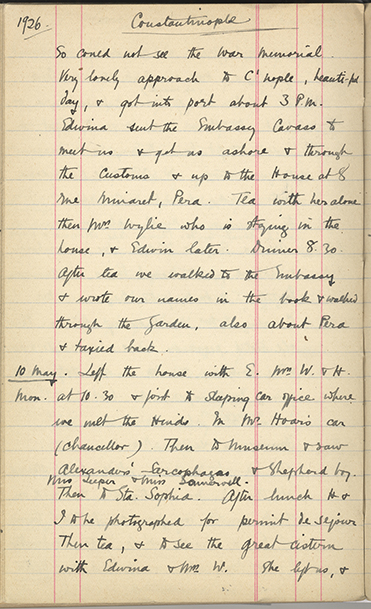 1926. Constantinople
So could not see the War Memorial.
Very lovely approach to C'nople, beautiful
day, & got into port about 3 P.M.
Edwina sent the Embassy Cavass to
meet us & get us ashore & through
the Customs & up to the House at 8
Rue Minaret, Pera. Tea with her alone
then Mrs Wylie who is staying in the
house, & Edwin later. Dinner 8.30.
After tea we walked to the Embassy
& wrote our names in the book & walked
through the Garden, also about Pera
& taxied back.
10 May. Left the house with E. Mrs W. & H.
Mon. at 10.30 & first to Sleeping car office where
we met the Hinds. In Mr Hoar's car
(Chancellor). Then to Museum & saw
Alexander's Sarcophagus & Shepherd boy.
Mrs Leeper & Miss Somervell.
Then to Sta. Sophia. After lunch H &
I to be photographed for permit de sejour
Then tea, & to see the great cistern
with Edwina & Mrs W. She left us, &